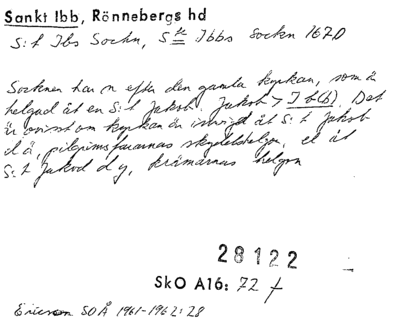 Sankt Ibb, Rönnebergs hd
S:t Ibs Sockn, S:te Ibbs Socken 1670
Socknen har n efter den gamla kyrkan, som är
helgad åt en S:t Jakob. Jakob > Ib(b). Det
är ovisst om kyrkan är invigd åt S:t Jakob
d ä, pilgrimsfararnas skyddshelgon, el åt
S:t Jakob d y, krämarnas helgon
28122
SkO A16: 72 f
Ericsson SOÅ 1961-1962:28